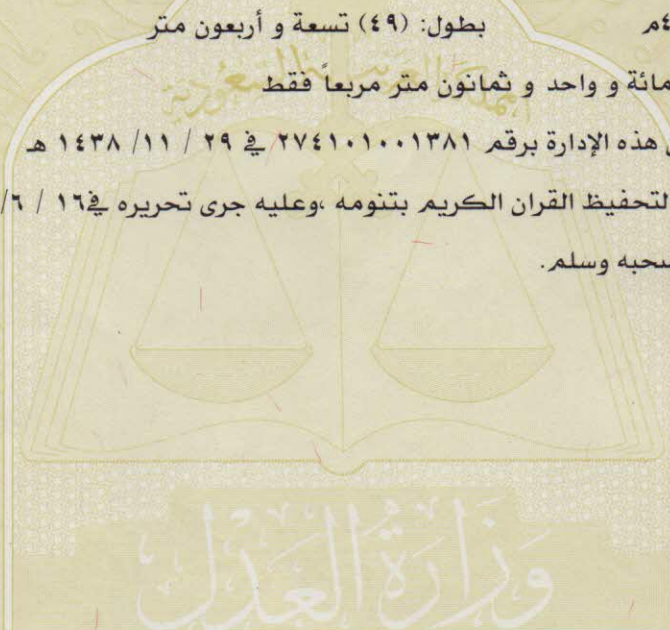 ٤م بطول: (٤٩) تسعة و أربعون متر
مائة و واحد و ثمانون متر مربعاً فقط
المملكة العربية السعودية
هذه الإدارة برقم ٢٧٤١٠١٠٠١٣٨١ في ٢٩ / ١١/ ١٤٣٨ هـ
لتحفيظ القران الكريم بتنومه ،وعليه جرى تحريره في١٦ / ٦/
صحبه وسلم.
وزارة العدل